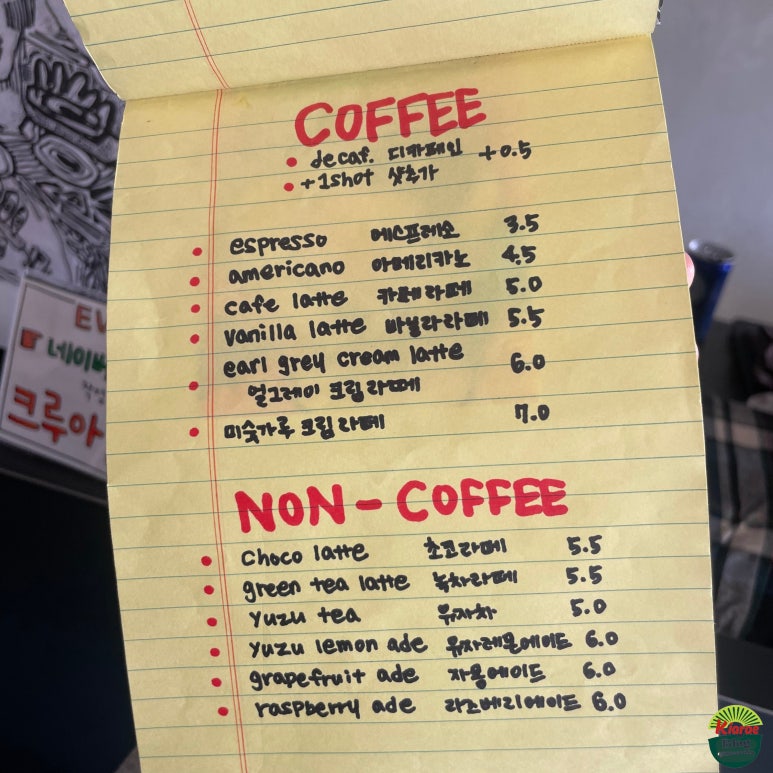 COFFEE
• decaf. 디카페인 +0.5
• +1shot 샷추가
• espresso 에스프레소 3.5
• americano 아메리카노 4.5
• cafe latte 카페라떼 5.0
• vanilla latte 바닐라라떼 5.5
earl grey cream latte
• 얼그레이 크림라떼 6.0
• 미숫가루 크림라떼 7.0
NON-COFFEE
• choco latte 초코라떼 5.5
• green tea latte 녹차라떼 5.5
• yuzu tea 유자차 5.0
• yuzu lemon ade 유자레몬에이드 6.0
• grapefruit ade 자몽에이드 6.0
• raspberry ade 라즈베리에이드 6.0
EV
네이버
크루아
Kiarae